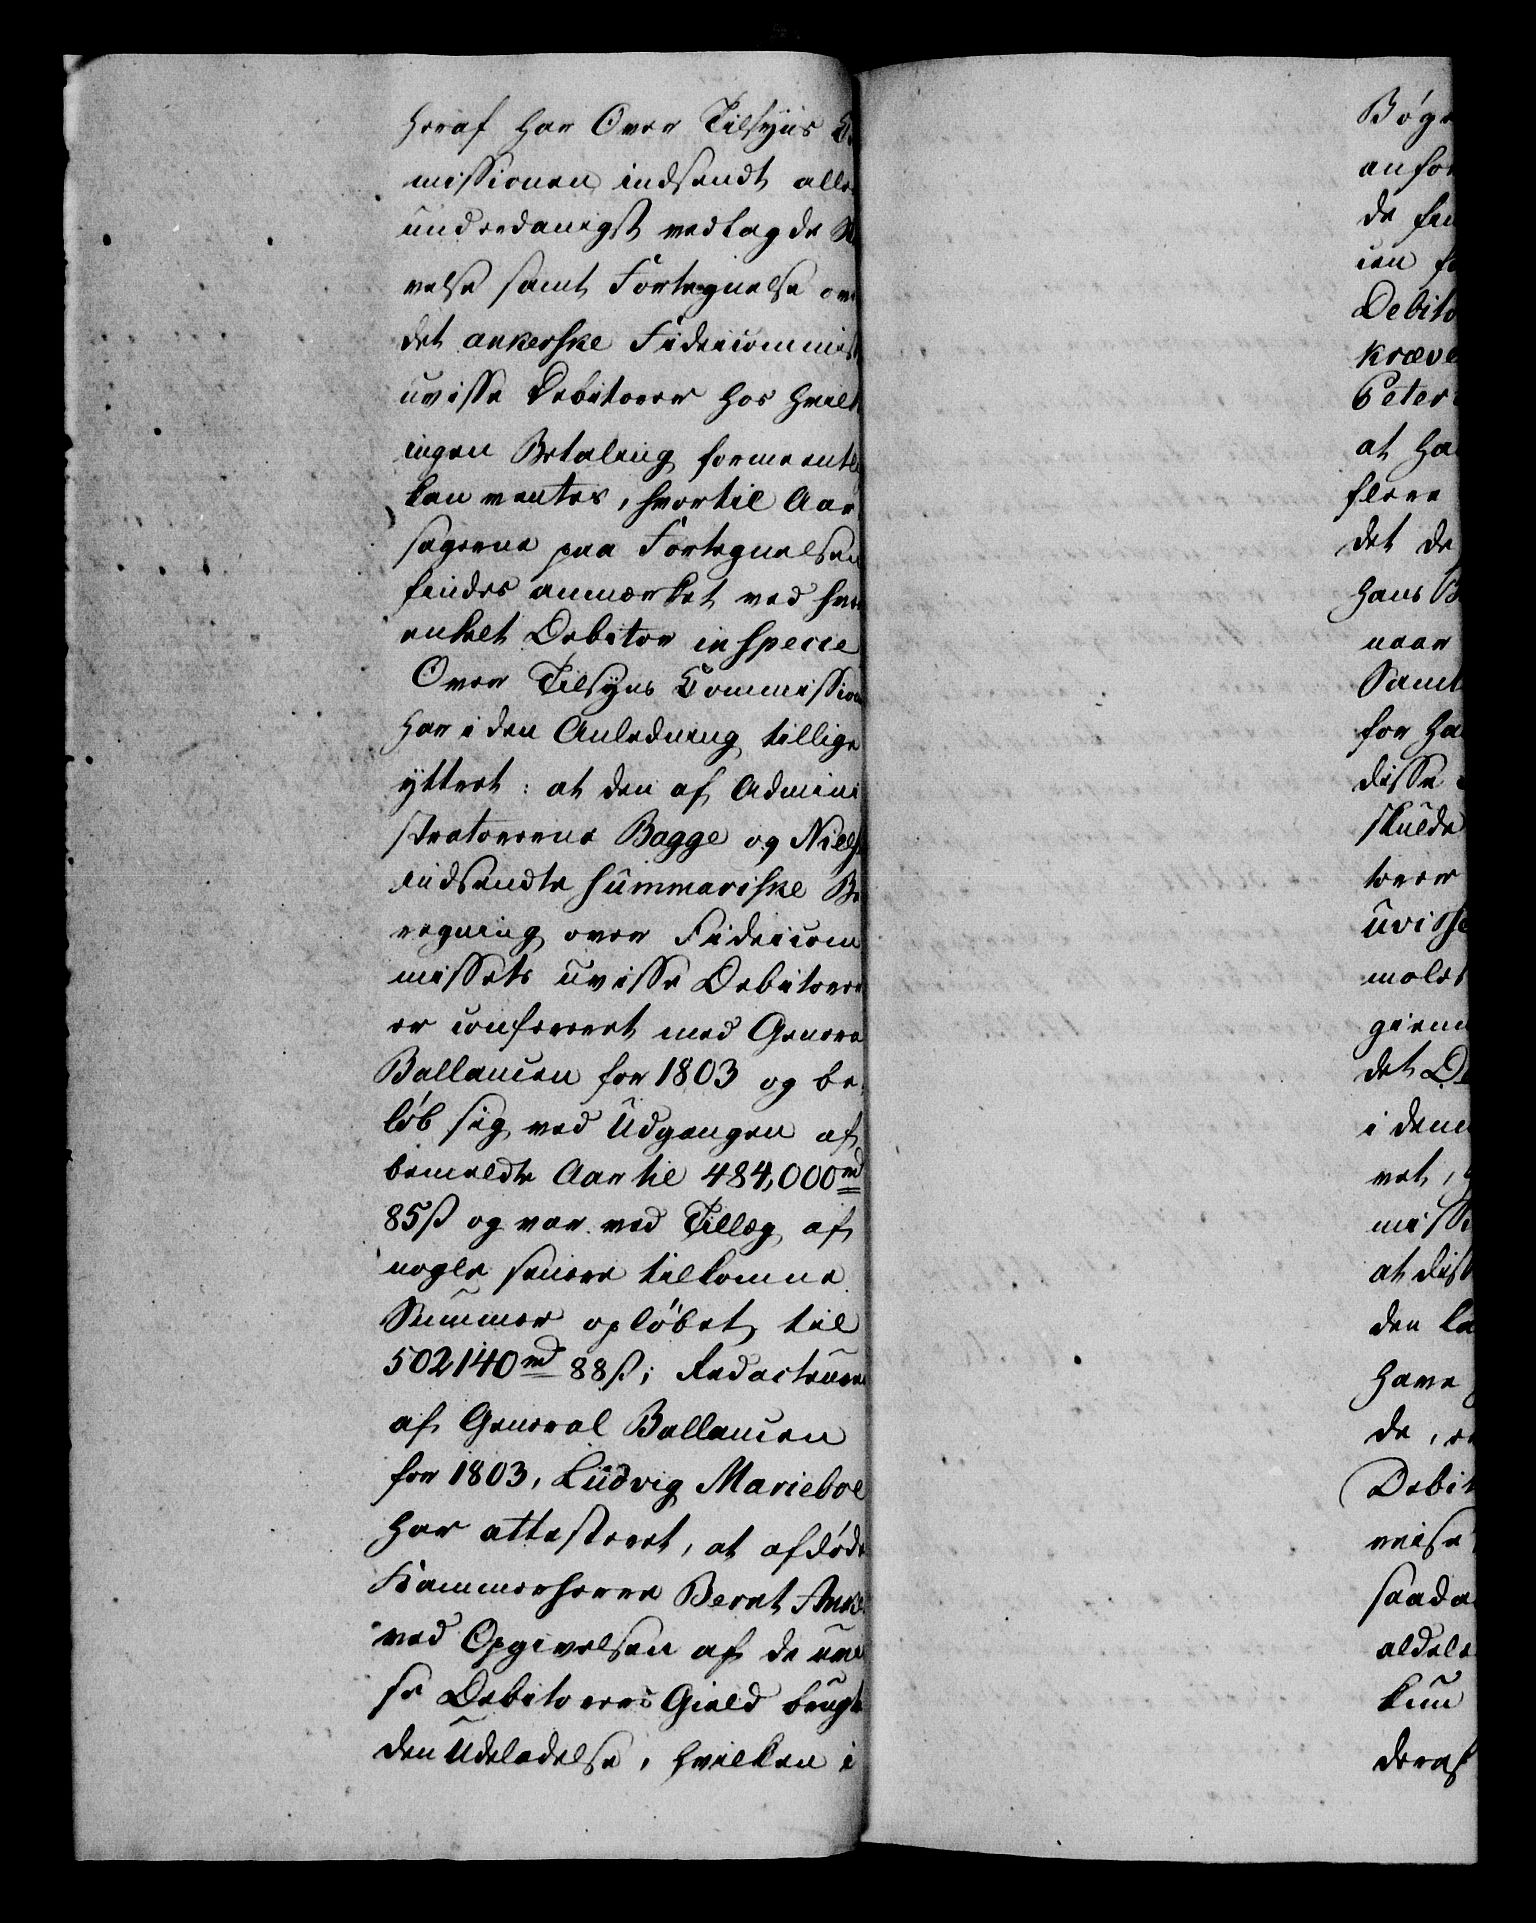 heraf har Over Tilsyns
missionen indsendt aller
underdanigst vedlagde
velse samt Fortegnelse over
det ankerske Fideicommis
uvisse Debitorer hos hvilk
ingen Betaling formeentl
kan ventes, hvortil Aar
sagerne paa Fortegnelsen
findes anmærket ved hver
enkelt Debitor in specie
Over Tilsyns Commission
har i den Anledning tillige
yttret: at den af Admini
stratorerne Bagge og Niels
indsendte summariske Be
regning over Fideicom
missets uvisse Debitorer
er confereret med General
Ballancen for 1803 og be-
løb sig ved Udgangen af
bemeldte Aar til 484,000 rd
85 ß og var ved Tillæg af
nogle senere tilkomne
Summer opløbet til
502140 rd 88 ß; Redacteuren
af General Ballancen
for 1803, Ludvig Marieboe
har attesteret, at afdøde
Kammerherre Bernt Anke
ved Opgivelsen af de uvi
se Debitorers Gield brugt
den Udeladelse, hvilken i
Bøge
anfø
de
cen
Debito
kræve
Peter
at ha
flere
det de
hans
naar
Samt
for ha
disse
skulde
torer
uvisse
moles
gienn
det De
i denn
ret,
missi
at dis
den
have
de,
Debit
veise
saada
aldele
kun
deraf